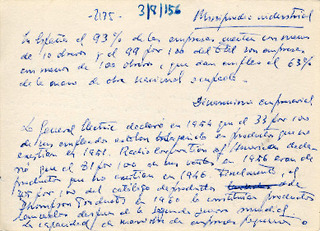 2135.- 3/8/156 Minifundio industrial
En España el 93% de las empresas cuentan con menos
de 10 obreros y el 99 por 100 del total son empresas
con menos de 100 obreros, que dan empleo al 63%
de la mano de obra nacional ocupada.
Dimensiones empresarial
La General Electric declaró en 1954 que el 33 por 100
de sus empleados estaban trabajando en productos que no
existían en 1951. Radio Corporation of American decla
ró que el 81 por 100 de sus ventas en 1956 eran de
productos que no existían en 1946. Finalmente, el
por 100 del catálogo de productos de
Thompson Products en 1960 lo constituían productos
lanzados después de la segunda guerra mundial
La capacidad de de empresas pequeñas